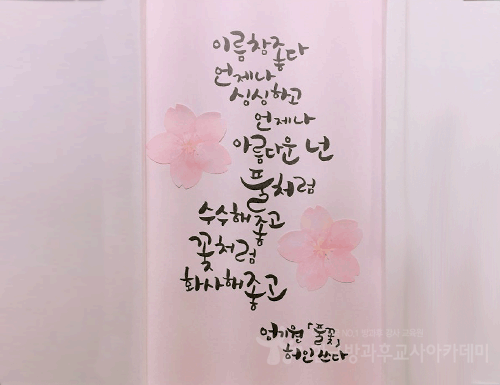 이름참좋다
언제나
싱싱하고
언제나
아름다운 넌
풀처럼
수수해좋고
꽃처럼
화사해좋고
엄기원「풀꽃」
허인 쓰다
방과후교사아카데미